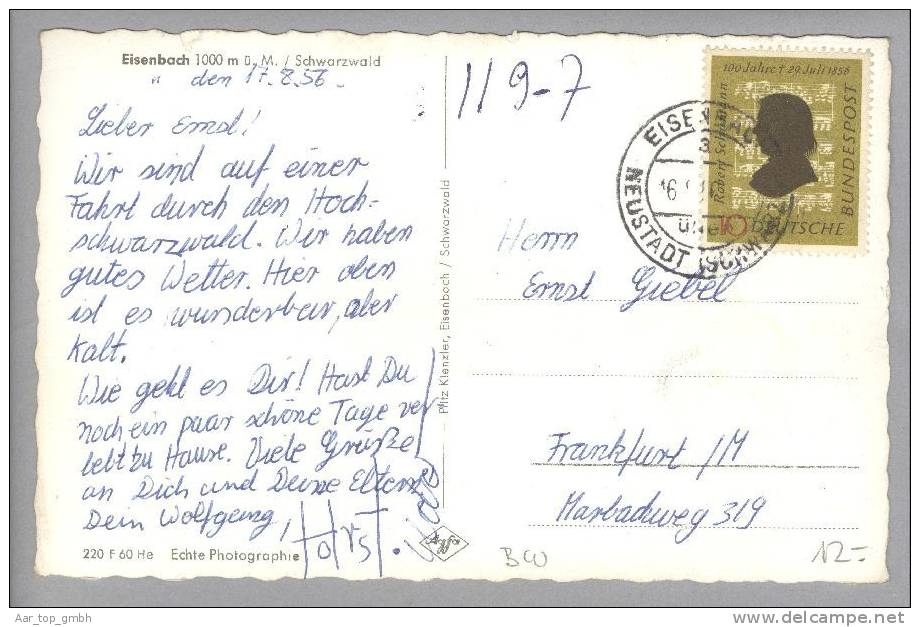 Eisenbach 1000 m ü. M. / Schwarzwald
" den 17.8.56.
Lieber Ernst!
Wir sind auf einer
Fahrt durch den Hoch-
schwarzwald. Wir haben
gutes Wetter. Hier oben
ist es wunderbar, aber
kalt.
Wie geht es Dir! Hast Du
noch ein paar schöne Tage ver
lebt zu Hause. Viele Grüße
an Dich und Deine Eltern
Dein Wolfgang,
Horst
220 F 60 He Echte Photographie
Fritz Kienzler, Eisenbach / Schwarzwald
119-7
100 Jahre † 29. Juli 1856
Robert Schumann
10 DEUTSCHE
BUNDESPOST
EISENBACH
über
NEUSTADT (SCHWARZW)
Herrn
Ernst Giebel
Frankfurt /M
Marbachweg 319
BW
12-
Aar_top_gmbh
www.delcampe.net